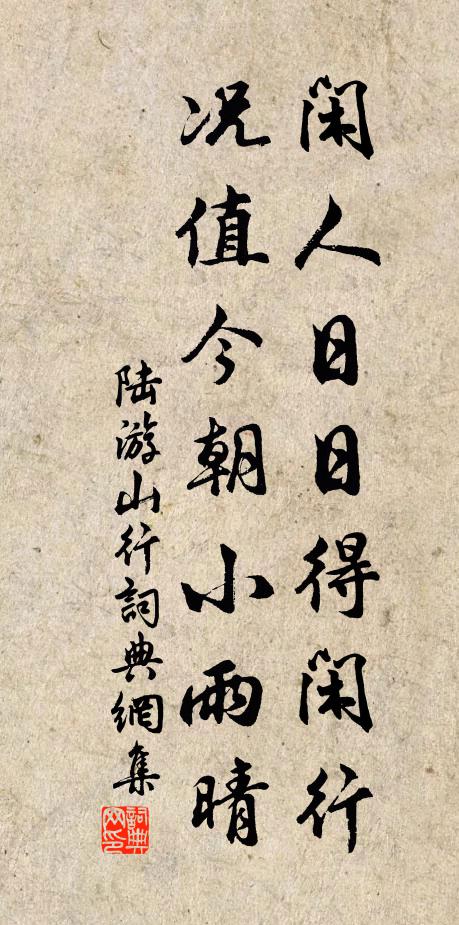 闲人日日得闲行
况值今朝小雨晴
陆游山行詞典網集
詞典
网印